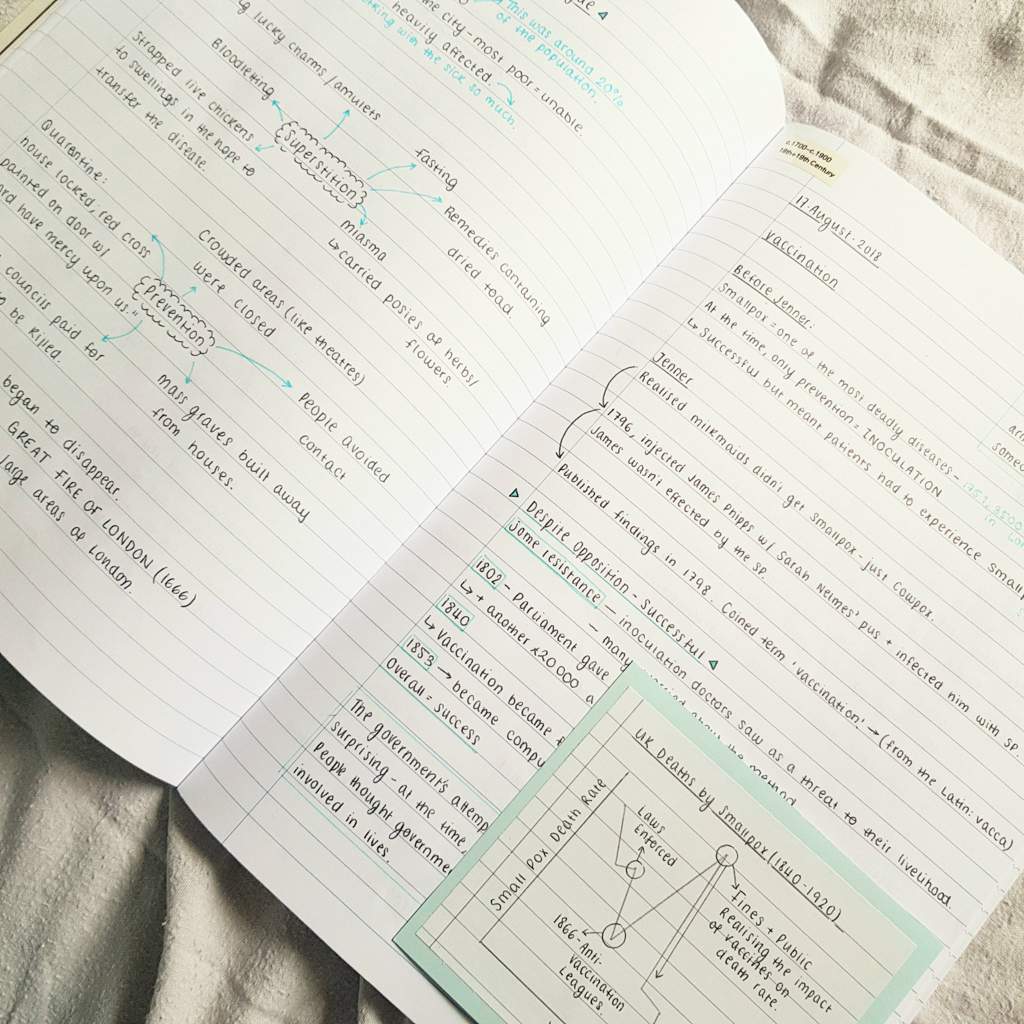 This was around 20%
of the population.
the city - most poor = unable
heavily affected.
with the sick so much
lucky charms / amulets
Bloodletting
Strapped live chickens
to swellings in the hope to
transfer the disease.
Superstition
Fasting
Remedies containing
dried toad
Miasma
↳ carried posies of herbs/
flowers
Quarantine:
house locked, red cross
painted on door w/
have mercy upon us."
Prevention
Crowded areas (like theatres)
were closed
councils paid for
be killed.
Mass graves built away
from houses.
People avoided
contact
began to disappear.
GREAT FIRE OF LONDON (1666)
large areas of London.
c.1700-c.1900
18th+19th Century
17.August.2018
Vaccination
Before Jenner:
Smallpox = one of the most deadly diseases -
At the time, only prevention = INOCULATION
↳ Successful but meant patients had to experience
Jenner
Realised milkmaids didn't get smallpox - just cowpox.
1796, injected James Phipps w/ Sarah Nelmes' pus + infected him with sp.
James wasn't effected by the sp.
Published findings in 1798. Coined term 'vaccination' → (from the Latin: vacca)
Despite Opposition - Successful
Some resistance - inoculation doctors saw as a threat to their livelihood.
- many about the method
1802 - Parliament gave
↳ + another £20 000
1840
↳ Vaccination became
1853 → became
Overall = success
The government's
surprising - at the time
People thought
involved in lives.
UK Deaths by Smallpox (1840-1920)
Small Pox Death Rate
Laws
Enforced
1866 - Anti-
Vaccination
Leagues.
Fines + Public
Realising the impact
of vaccines on
death rate.